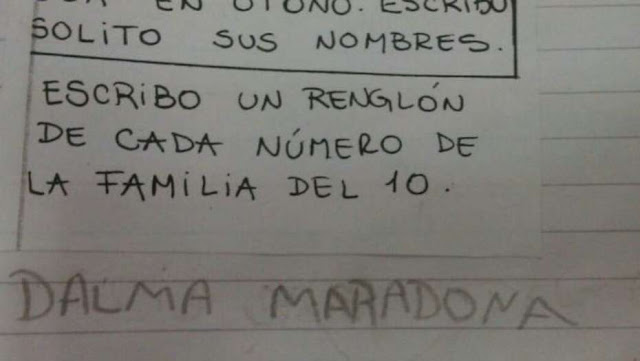 EN OTOÑO. ESCRIBO
SOLITO SUS NOMBRES.
ESCRIBO UN RENGLÓN
DE CADA NÚMERO DE
LA FAMILIA DEL 10.
DALMA MARADONA